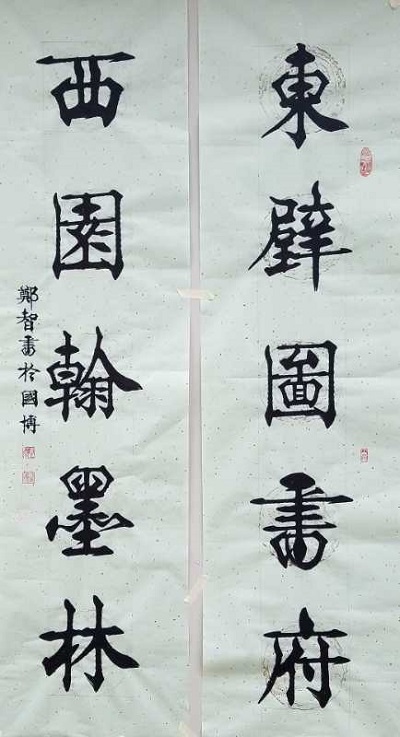 東壁圖書府
西園翰墨林
鄭智書於國博